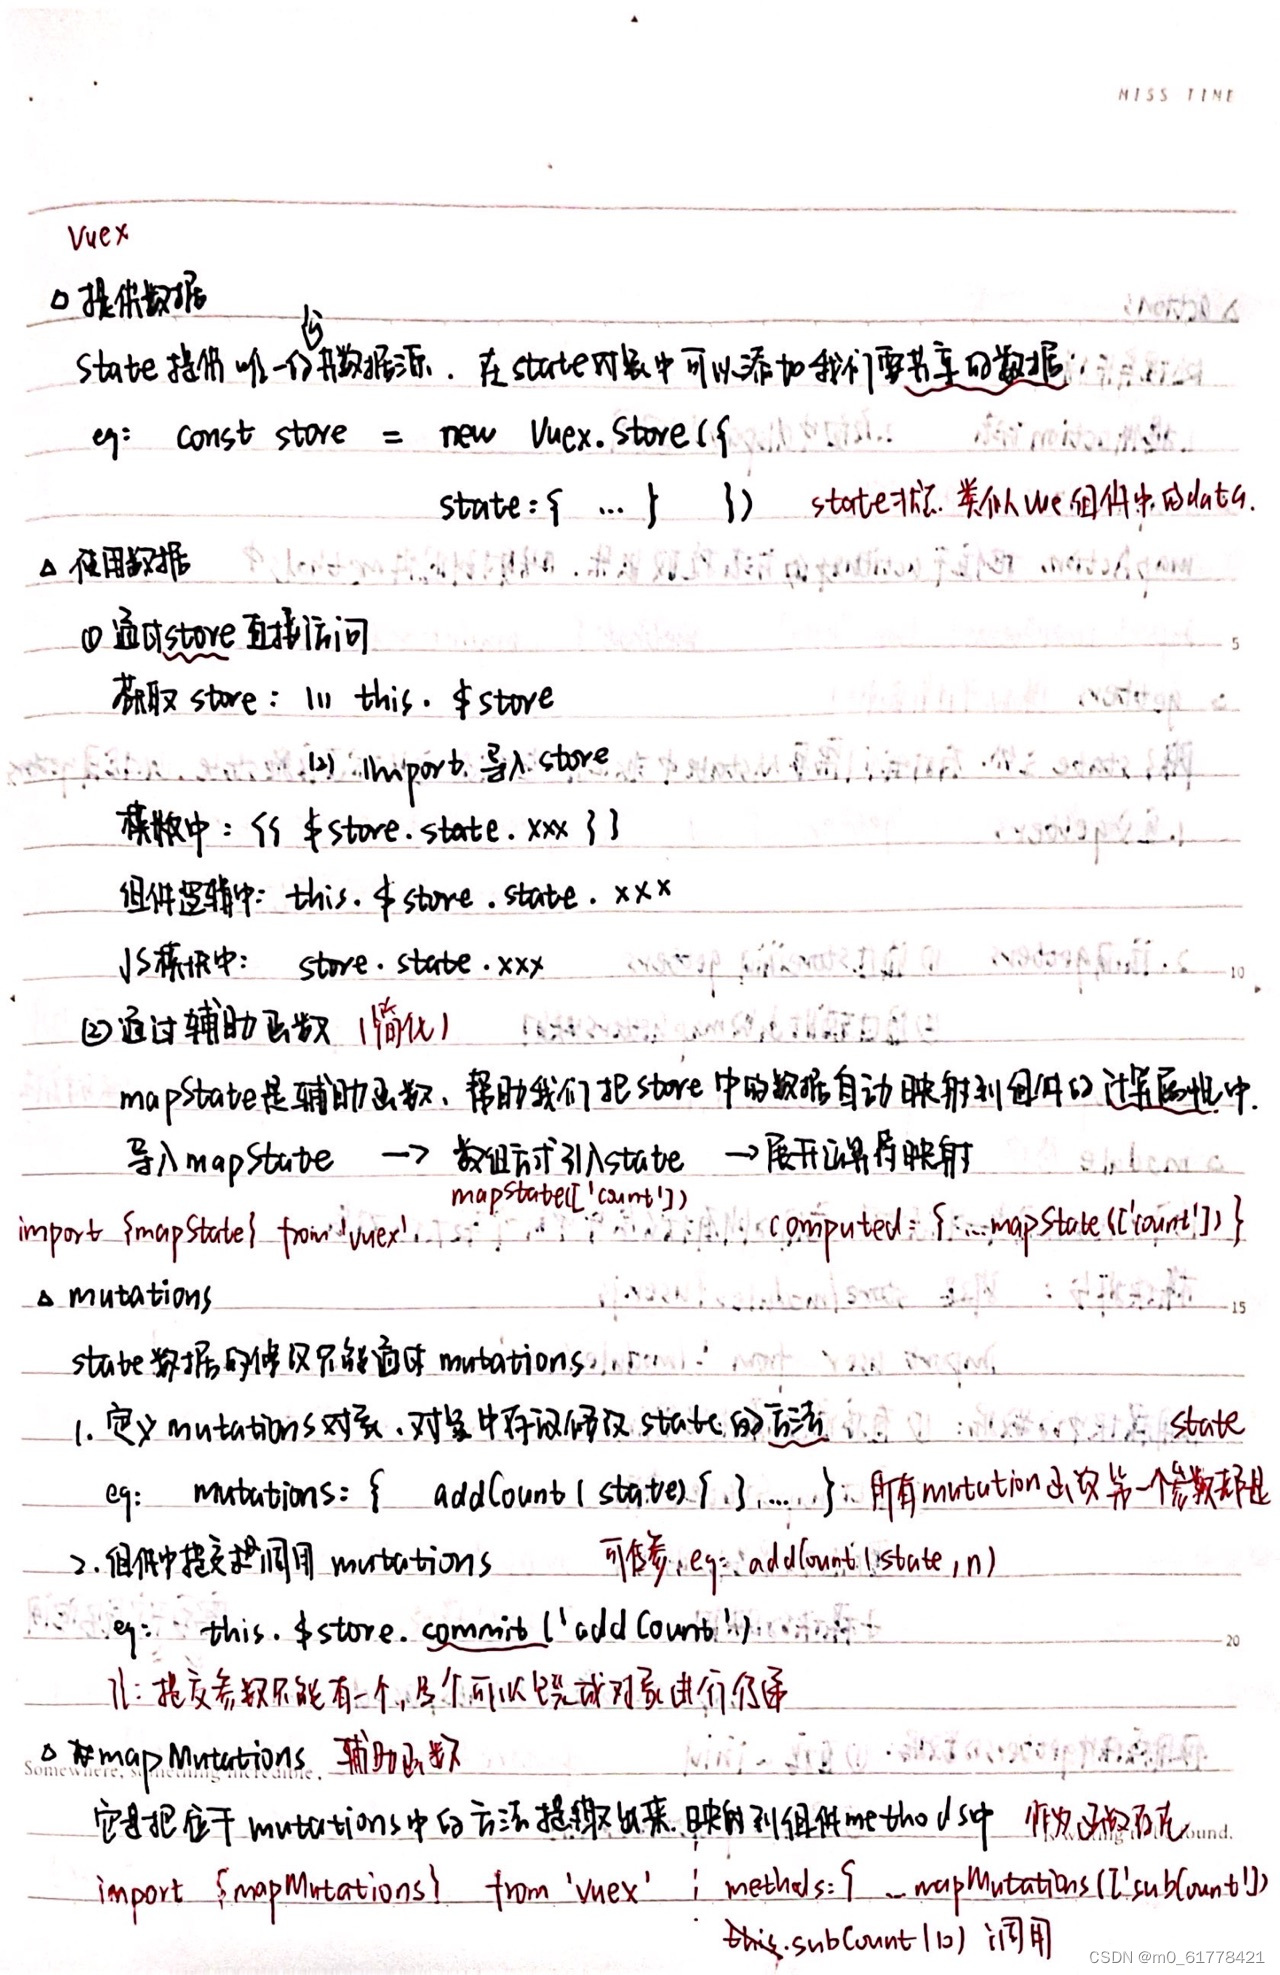 MISS TIME
Vuex
△ 提供数据
state提供唯一的公共数据源. 在state对象中可以添加我们要共享的数据.
eg: const store = new Vuex.Store({
state:{ ... } }) state状态. 类似vue组件中的data.
△ 使用数据
① 通过store直接访问
5
获取 store: (1) this.$store
(2) import 导入 store
模板中: {{ $store.state.xxx }}
组件逻辑中: this.$store.state.xxx
JS模块中: store.state.xxx
10
②通过辅助函数 (简化)
mapState是辅助函数、帮助我们把store中的数据自动映射到组件的计算属性中.
导入mapState → 数组方式引入state → 展开运算符映射
mapState(['count'])
import {mapState} from 'vuex' computed: {...mapState(['count'])}
△ mutations
15
state数据的修改只能通过mutations
1. 定义mutations对象.对象中存放修改state的方法 state
eg: mutations: { addCount (state) { }, ... } 所有mutation函数第一个参数都是
2. 组件中提交调用 mutations 可传参 eg: addCount (state, n)
eg: this.$store.commit ('addCount')
20
注: 提交参数只能有一个,多个可以包装成对象进行传递
△ mapMutations 辅助函数
Somewhere, something incredible
它是把位于mutations中的方法提取出来.映射到组件methods中 作为函数
ound.
import {mapMutations} from 'vuex' methods:{ ...mapMutations(['subCount'])
this.subCount(10) 调用
CSDN @m0_61778421